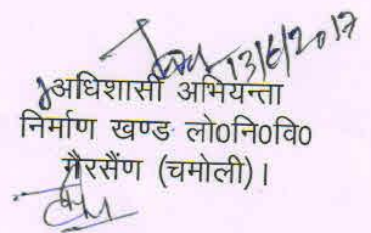 13/6/2017
अधिशासी अभियन्ता
निर्माण खण्ड लो0नि0वि0
गैरसैंण (चमोली)।